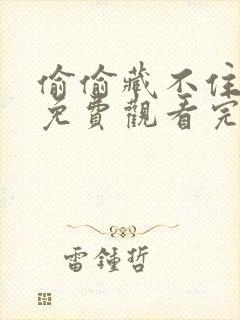 偷偷藏不住
免費觀看完
雷鍾哲